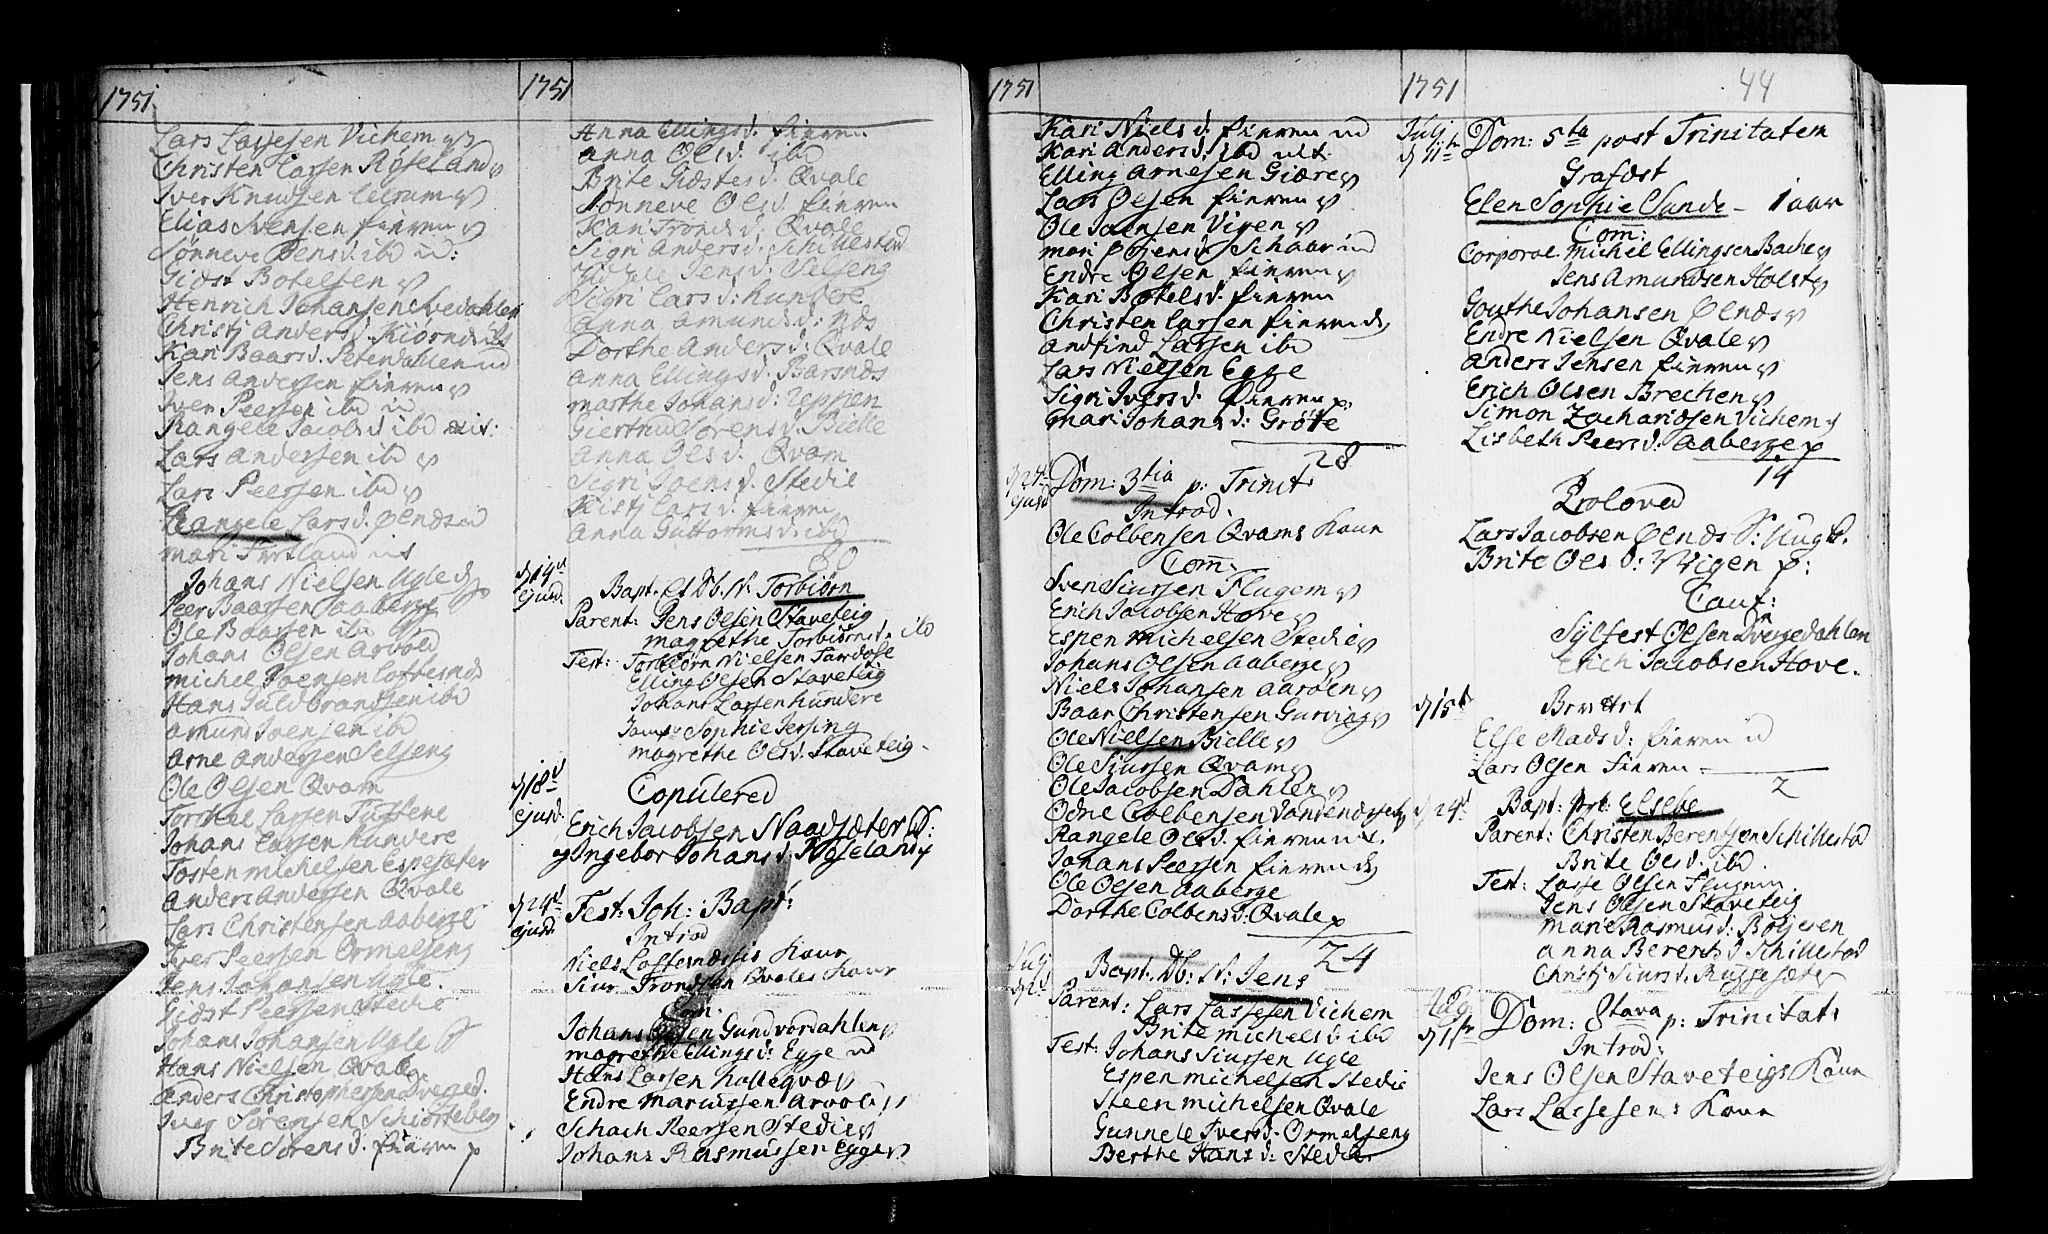 1751
Lars Lassesen Vichem
Christen Larsen Røseland
Iver Knudsen
Elias Ivensen fieren
Sønneve Øens d: ibd ud:
Giøst Botelsen
Henrich Johansen
Christj Anders d.
Kari Baars d. Petersdahlen ud
Jens Andersen fieren
Iver Peersen ibd ud
Rangele Jacobs d ibd
Lars Andersen ibd
Lars Peersen ibd
Rangele Lars d. Ølnæs ud
Mari
Johans Nielsen Ugle
Peer Baarsen Aaberge
Ole Baarsen ibd
Johans Olsen Arvold
Michel Joensen Loftesnæs
Hans Guldbrandsen ibd
Amund Joensen ibd
Arne Andersen Selseng
Ole Olsen Qvam
Torchel Larsen Tuftene
Johans Larsen Hundere
Tosten Michelsen Espesæter
Anders Andersen Qvale
Lars Christensen Aaberge
Iver Peersen Ormelseng
Jens Johansen Ugle.
Giøst Peersen Stedie
Johans Johansen Ugle
Hans Nielsen Qvale
Anders Christophersen
Iver Sørensen Schiørteberg
Brite Sørens d. fieren p
1751
Anna Ellings d. fieren
Anna Ols d. ibd
Brite Giøstes d. Qvale
Sønneve Ols d. fieren
Kari Tronds d. Qvale
Sigri Anders d. Schillestad
Jens d. Selseng
Sigri Lars d: Hundere
Anna Amunds d: Næs
Dorthe Anders d: Qvale
Anna Ellings d. Barsnæs
Marthe Johans d: Reppen
Giertrud Sørens d. Bielle
Anna Ols d. Qvam
Sigri Joens d. Stedie
Kistj Lars d. fieren
Anna Guttorms d. ibd
80
d 14d ejusd.
Bapt. et Db. N. Torbiørn
Parent: Jens Olsen Staveteig
Magrethe Torbiørns d. ibd
Test: Torbiørn Nielsen
Elling Olsen Staveteig
Johans Larsen Hundere
Sophie
Magrethe Ols d. Staveteig
d 18d ejusd.
Copulered
Erich Jacobsen Naadsæter S:
og Ingebor Johans d. Røseland
d 24d ejusd.
Fest: Joh: Bapt:
Introd
Niels Loftesnæsis Kone
Siur Trondsen Qvales Kone
Com:
Johans Olsen Gundvordahlen
Magrethe Ellings d: Egge ud
Hans Larsen
Endre Mariussen Arvold
Schach Peersen Stedie
Johans Rasmussen Egge
1751
Kari Niels d: fieren ud
Kari Anders d: ibd ult.
Elling Arnesen Giære
Lars Olsen fieren
Ole Joensen Vigen
Mari Schaar ud
Endre Olsen fieren
Kari Botels d. fieren
Christen Larsen fieren
Andfind Larsen ibd
Lars Nielsen Egge
Sigri Ivers d. fieren
Mari Johans d: Grøte
28
d 24d ejusd
Dom: 3tia p: Trinit:
Introd.
Ole Colbensen Qvams Kone
Com:
Sven Siursen Flugem
Erich Jacobsen Hove
Espen Michelsen Stedie
Johans Olsen Aaberge
Niels Johansen Aarøen
Baar Christensen Gurving
Ole Nielsen Bielle
Ole Siursen Qvam
Ole Jacobsen Dahlen
Odne Colbensen
Rangele Ols d. fieren ult.
Johans Peersen fieren
Ole Olsen Aaberge
Dorthe Colbens d: Qvale p
24
July d 2d
Bapt. Db: N: Jens
Parent: Lars Lassesen Vichem
Brite Michels d: ibd
Test: Johans Siursen Ugle
Espen Michelsen Stedie
Steen Michelsen Qvale
Gunnele Ivers d. Ormelseng
Berthe Hans d: Stedie
1751
44
Julj d 11te
Dom: 5ta post Trinitatem
Grafæst
Elen Sophie Sunde - 1 aar
Com:
Corporal Michel Ellingsen Bache
Jens Amundsen Holst
Gouthe Johansen Ølnæs
Endre Nielsen Qvale
Anders Jensen fieren
Erich Olsen Brechen
Simon Zachariæsen Vichem
Lisbeth Peers d. Aaberge p
14
Troloved
Lars Jacobsen Ølnæs S: Ungk.
Brite Ols d: Vigen p:
Caut:
Sylfest Olsen Dveggedahlen
Erich Jacobsen Hove.
d 15d
Berettet
Else Mads d: fieren ud
Lars Olsen fieren
2
d 24d
Bapt: prt: Elsebe
Parent: Christen Berentsen Schillestad
Brite Ols d. ibd.
Test: Lasse Olsen Flugem
Jens Olsen Staveteig
Marie Rasmus d: Boljeren
Anna Berents d Schillestad
Christj Siurs d. Ruggesæter
Aug d 1ste
Dom: 8tava p: Trinitat:
Introd:
Jens Olsen Staveteigs Kone
Lars Lassesens Kone